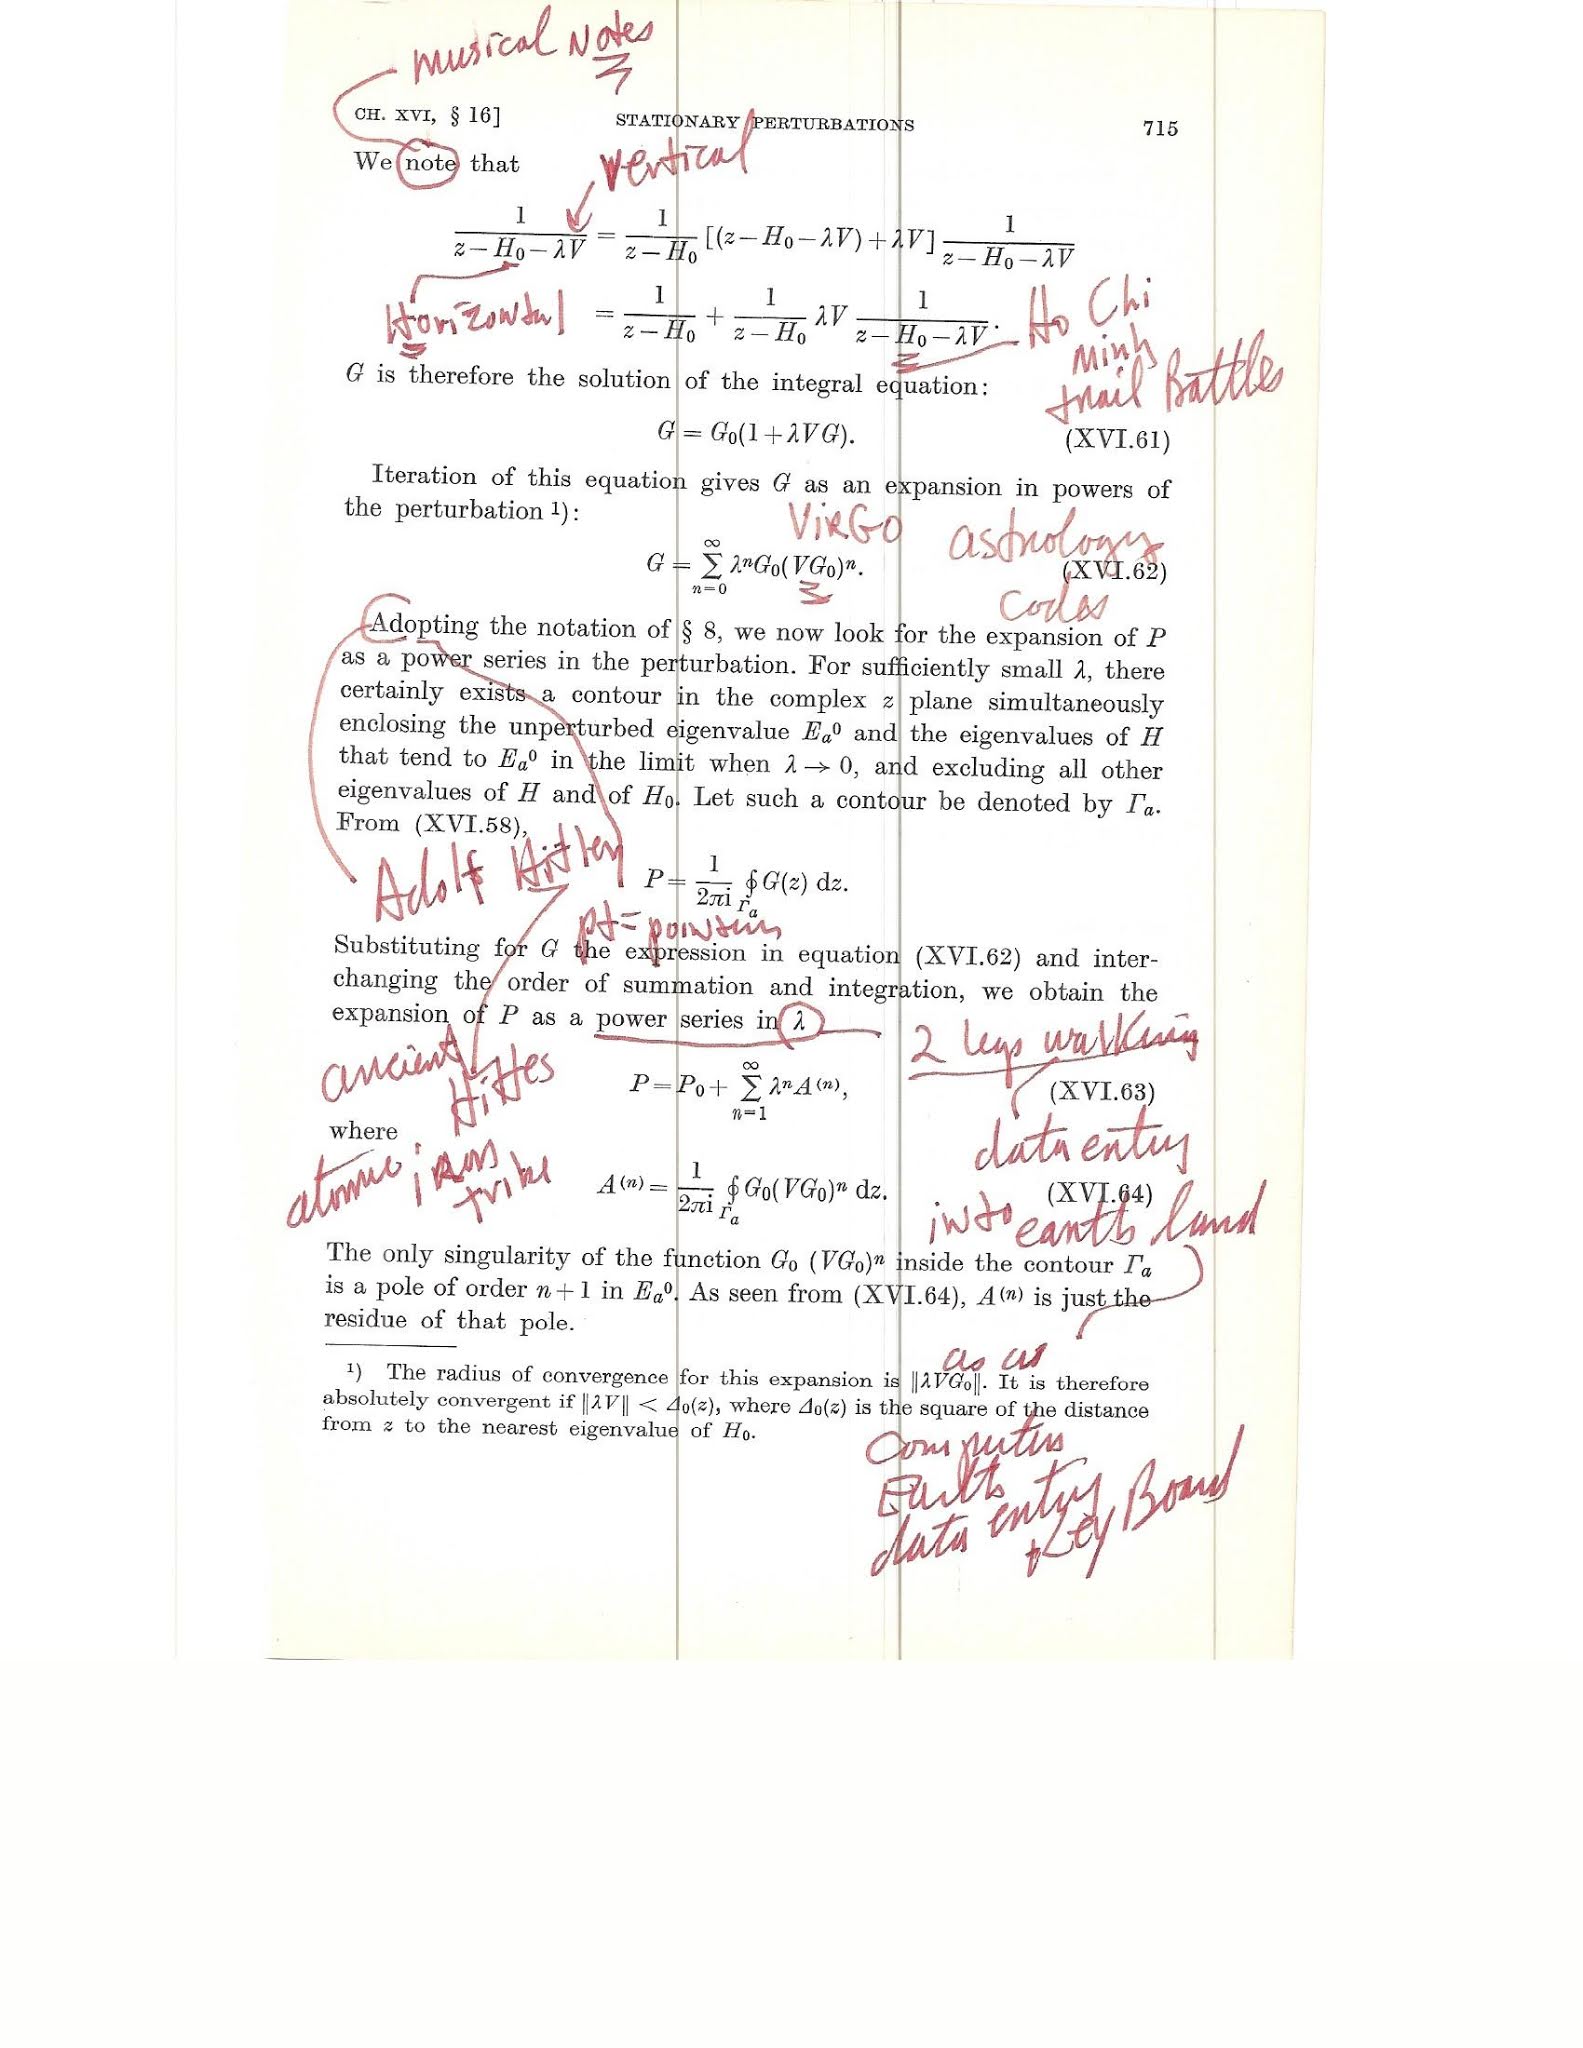 musical Notes
CH. XVI, § 16] STATIONARY PERTURBATIONS 715
We note that
vertical
1/(z−H₀−λV) = 1/(z−H₀) [(z−H₀−λV)+λV] 1/(z−H₀−λV)
Horizontal
= 1/(z−H₀) + 1/(z−H₀) λV 1/(z−H₀−λV).
Ho Chi
Minh
trail Battles
G is therefore the solution of the integral equation:
G = G₀(1+λVG). (XVI.61)
Iteration of this equation gives G as an expansion in powers of
the perturbation ¹):
VirGo
astrology
codes
G = ∑_{n=0}^{∞} λⁿG₀(VG₀)ⁿ. (XVI.62)
Adopting the notation of § 8, we now look for the expansion of P
as a power series in the perturbation. For sufficiently small λ, there
certainly exists a contour in the complex z plane simultaneously
enclosing the unperturbed eigenvalue Eₐ⁰ and the eigenvalues of H
that tend to Eₐ⁰ in the limit when λ → 0, and excluding all other
eigenvalues of H and of H₀. Let such a contour be denoted by Γₐ.
From (XVI.58),
Adolf Hitler
P = 1/(2πi) ∮_{Γₐ} G(z) dz.
Substituting for G the expression in equation (XVI.62) and inter-
changing the order of summation and integration, we obtain the
expansion of P as a power series in λ
2 legs walking
ancient
Hittes
P = P₀ + ∑_{n=1}^{∞} λⁿA⁽ⁿ⁾, (XVI.63)
where
data entry
atomic iron
tribe
A⁽ⁿ⁾ = 1/(2πi) ∮_{Γₐ} G₀(VG₀)ⁿ dz. (XVI.64)
into earths land
The only singularity of the function G₀ (VG₀)ⁿ inside the contour Γₐ
is a pole of order n+1 in Eₐ⁰. As seen from (XVI.64), A⁽ⁿ⁾ is just the
residue of that pole.
¹) The radius of convergence for this expansion is ‖λVG₀‖. It is therefore
absolutely convergent if ‖λV‖ < Δ₀(z), where Δ₀(z) is the square of the distance
from z to the nearest eigenvalue of H₀.
as
Computers
Earths
data entry
Key Board